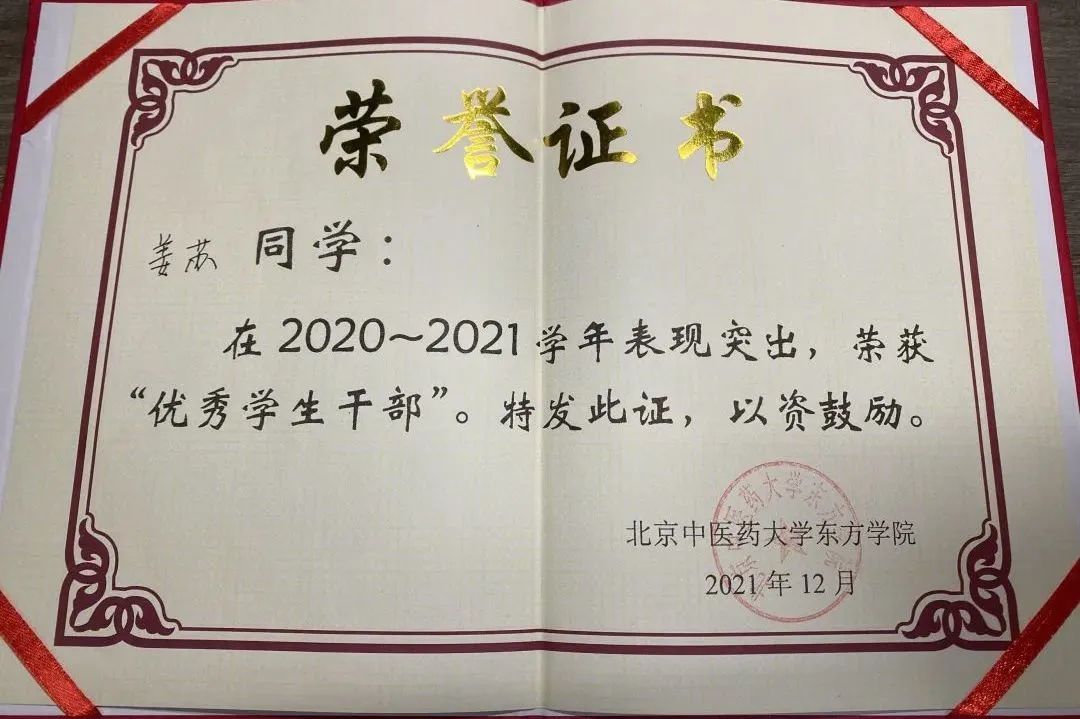 荣誉证书
姜苏 同学：
在2020～2021学年表现突出，荣获
“优秀学生干部”。特发此证，以资鼓励。
北京中医药大学东方学院
2021年12月
北京中医药大学东方学院